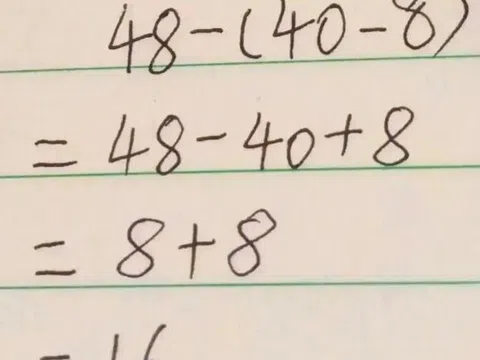 48-(40-8)
= 48-40+8
= 8+8
= 16